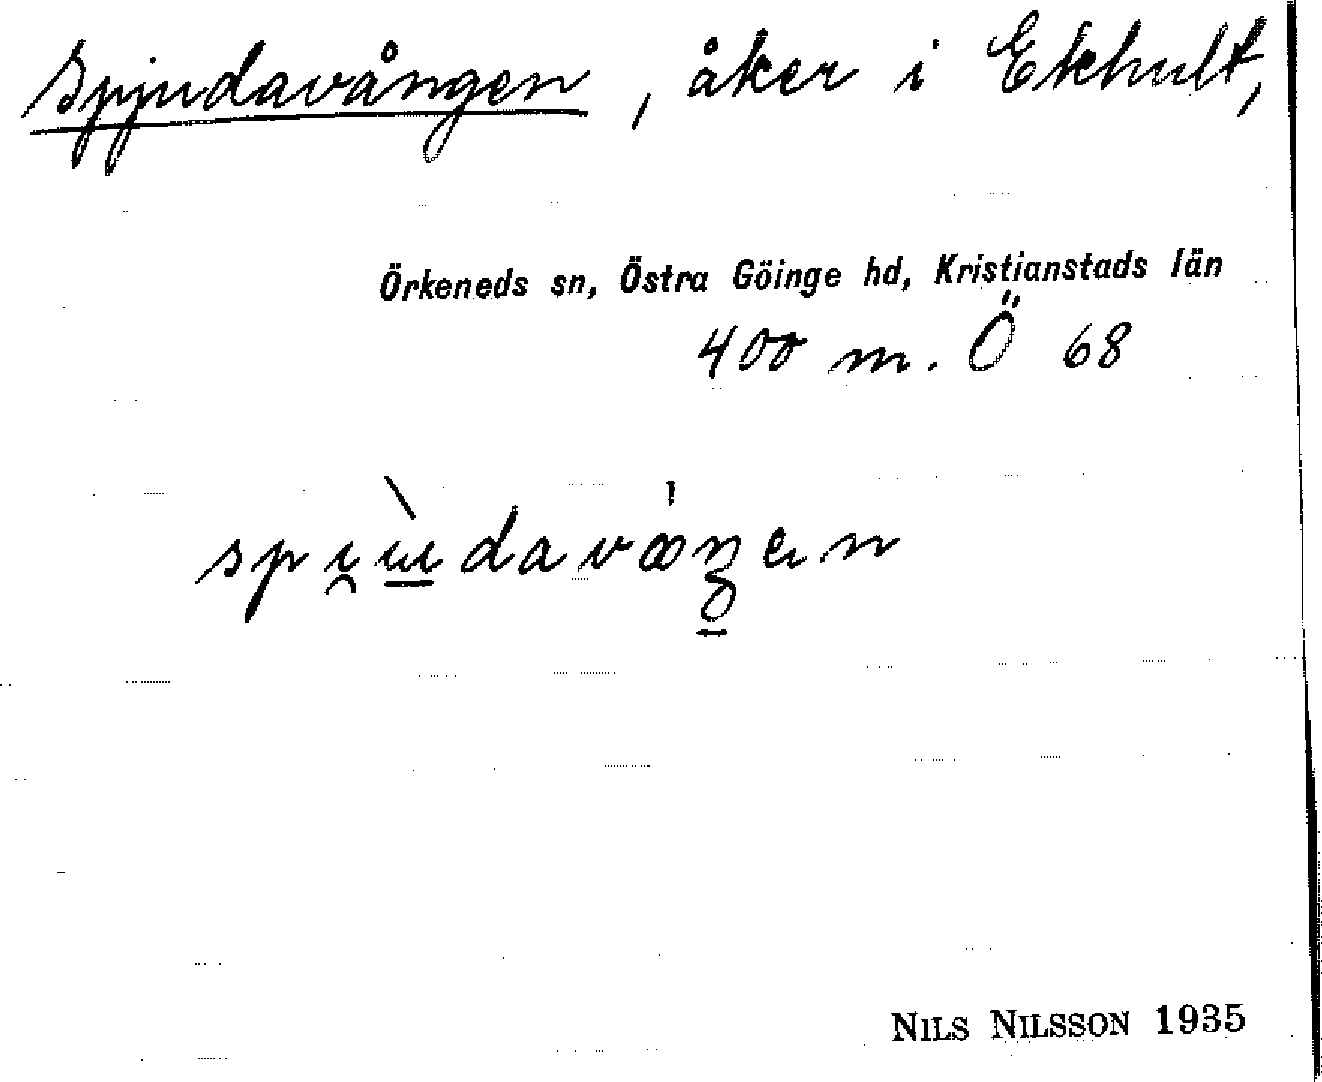 Spjudavången, åker i Ekhult,
Örkeneds sn, Östra Göinge hd, Kristianstads län
400 m. Ö 68
NILS NILSSON 1935